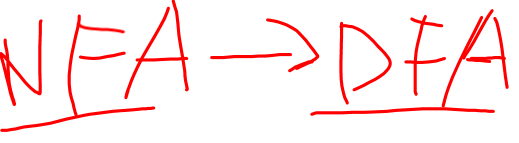 NFA → DFA